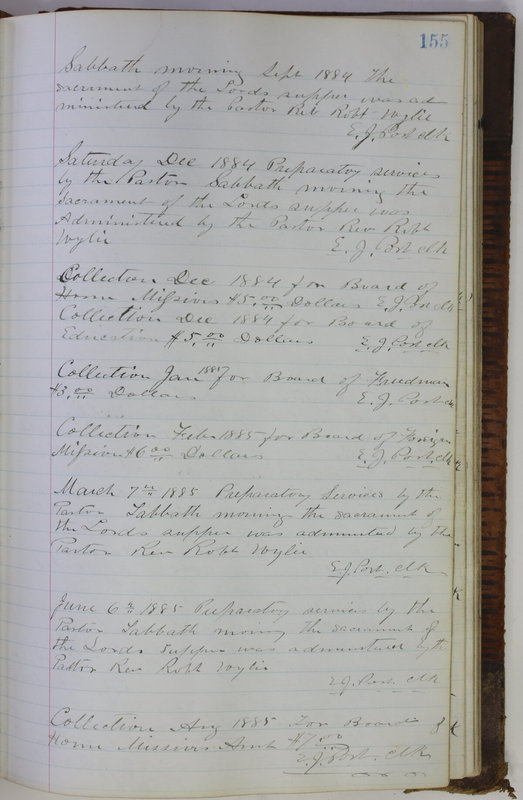 155
Sabbath morning Sept 1884 the
sacrement of the Lords supper was ad
ministered by the Pastor Rev Robt Wylie
E. J. Post clk
Saturday Dec 1884 Preparatory services
by the Pastor Sabbath morning the
Sacrament of the Lords supper was
Administered by the Pastor Rev Robt
Wylie E. J. Post clk
Collection Dec 1884 for Board of
Home Missions $5.00 Dollars E. J. Post clk
Collection Dec 1884 for Board of
Education $5.00 Dollars E. J. Post clk
Collection Jan 1885 for Board of Freedman
$3.00 Dollars E. J. Post clk
Collection Feb 1885 for Board of Foreign
Mission $6.00 Dollars E. J. Post. clk
March 7th 1885 Preparatory Services by the
Pastor Sabbath morning the sacrament of
the Lords supper was administered by the
Pastor Rev Robt Wylie
E. J. Post. clk
June 6th 1885 Preparatory services by the
Pastor Sabbath morning the sacrament of
the Lords supper was administered by the
Pastor Rev Robt Wylie
E. J. Post. clk
Collection Aug 1885 For Board of
Home Missions Amt $7.00
E. J. Post. clk